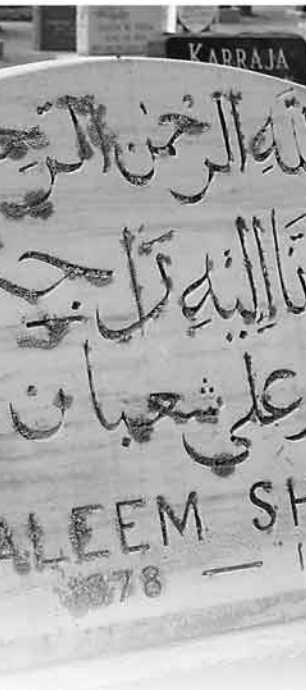 KARRAJA
الله الرحمن الرحيم
إنا إليه راجعون
علي شعبان
ALEEM SH
1878 —